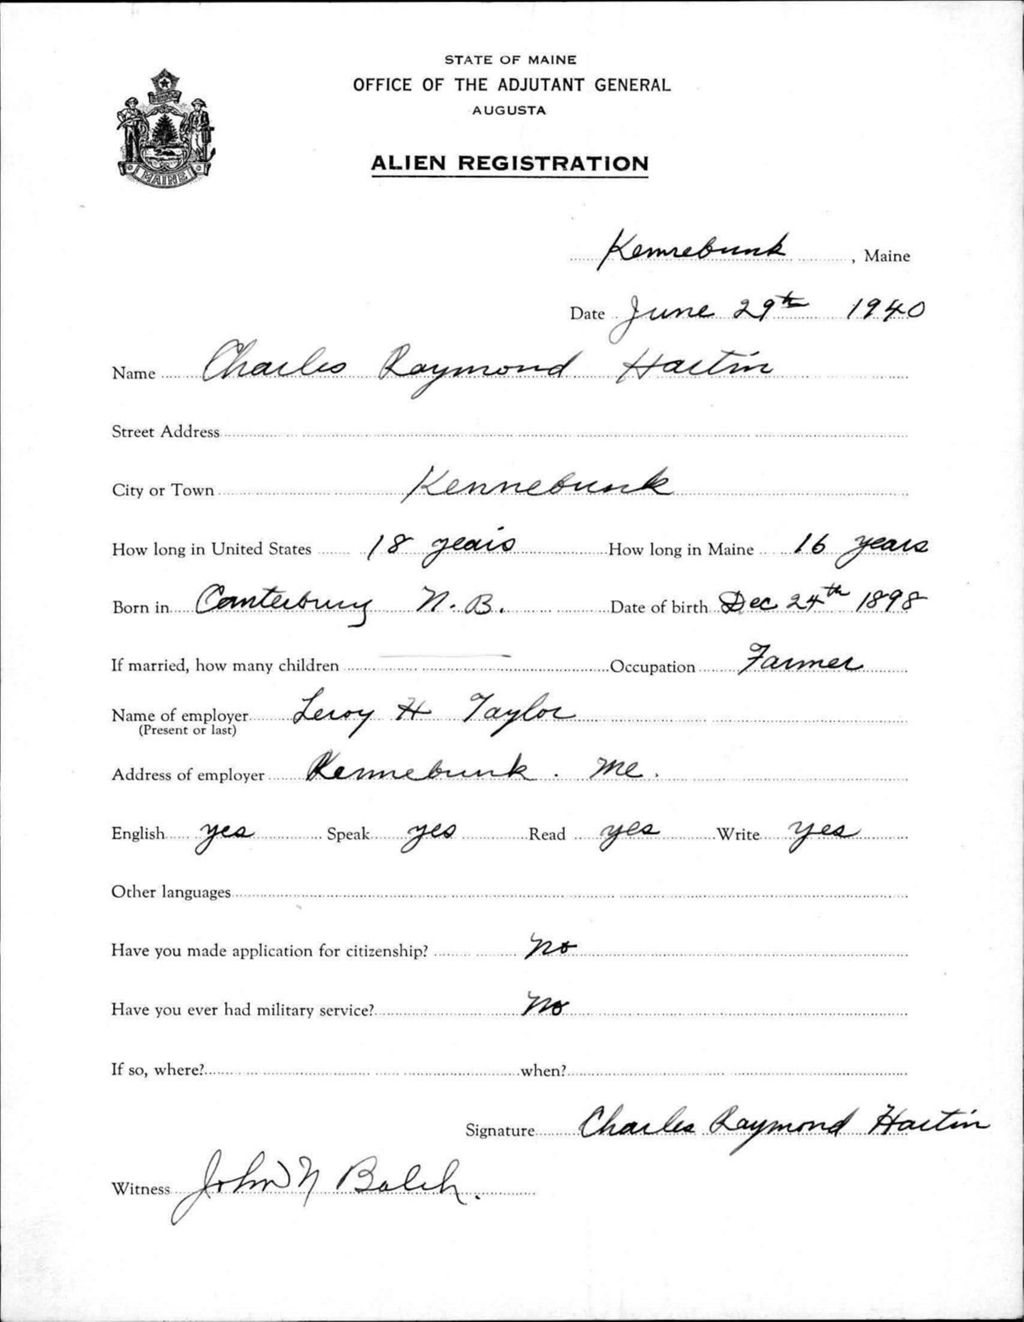 STATE OF MAINE
OFFICE OF THE ADJUTANT GENERAL
AUGUSTA
ALIEN REGISTRATION
MAINE
Kennebunk, Maine
Date June 29th 1940
Name Charles Raymond Hartin
Street Address
City or Town Kennebunk
How long in United States 18 years How long in Maine 16 years
Born in Canterbury N.B. Date of birth Dec 24th 1898
If married, how many children — Occupation Farmer
Name of employer Leroy H Taylor
(Present or last)
Address of employer Kennebunk. Me.
English yes Speak yes Read yes Write yes
Other languages
Have you made application for citizenship? No
Have you ever had military service? No
If so, where? when?
Signature Charles Raymond Hartin
Witness John N Balch.